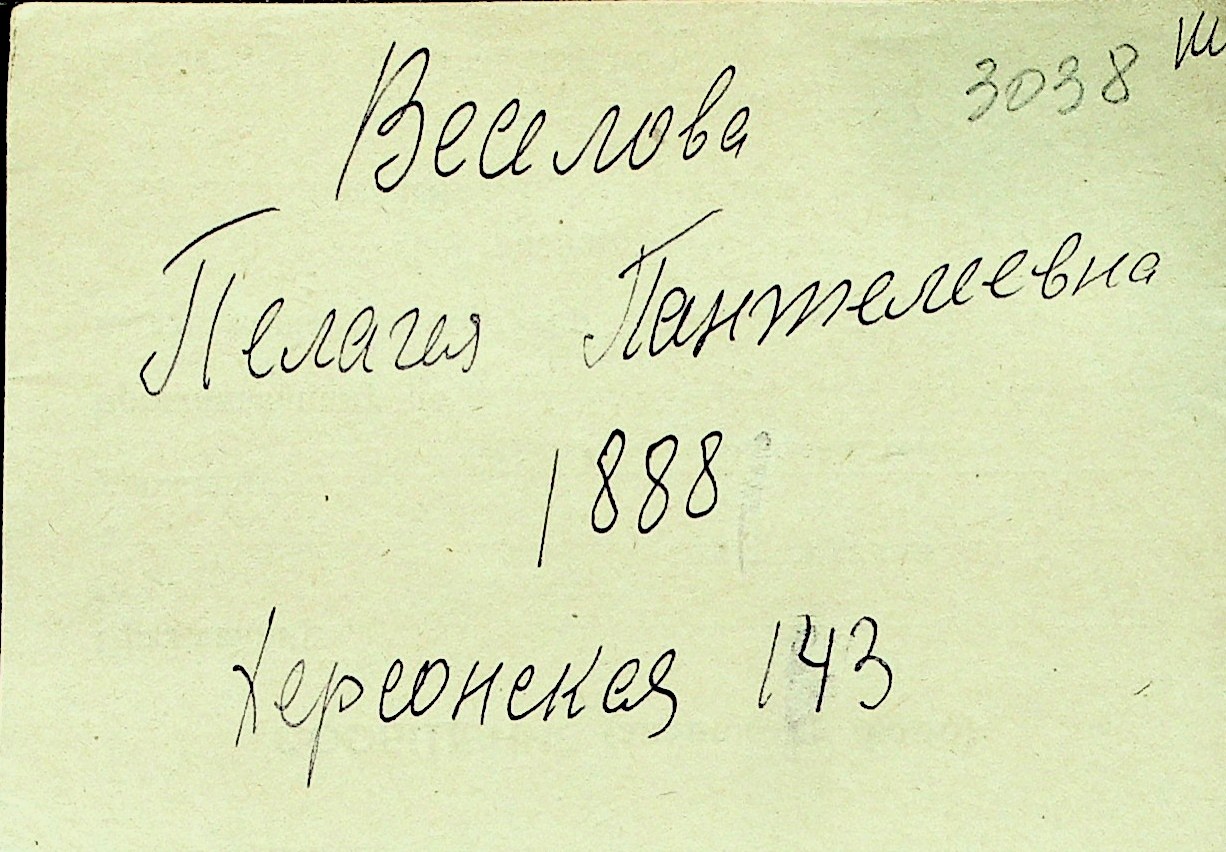 3038 Ш
Веселова
Пелагея Пантелеевна
1888
Херсонская 143